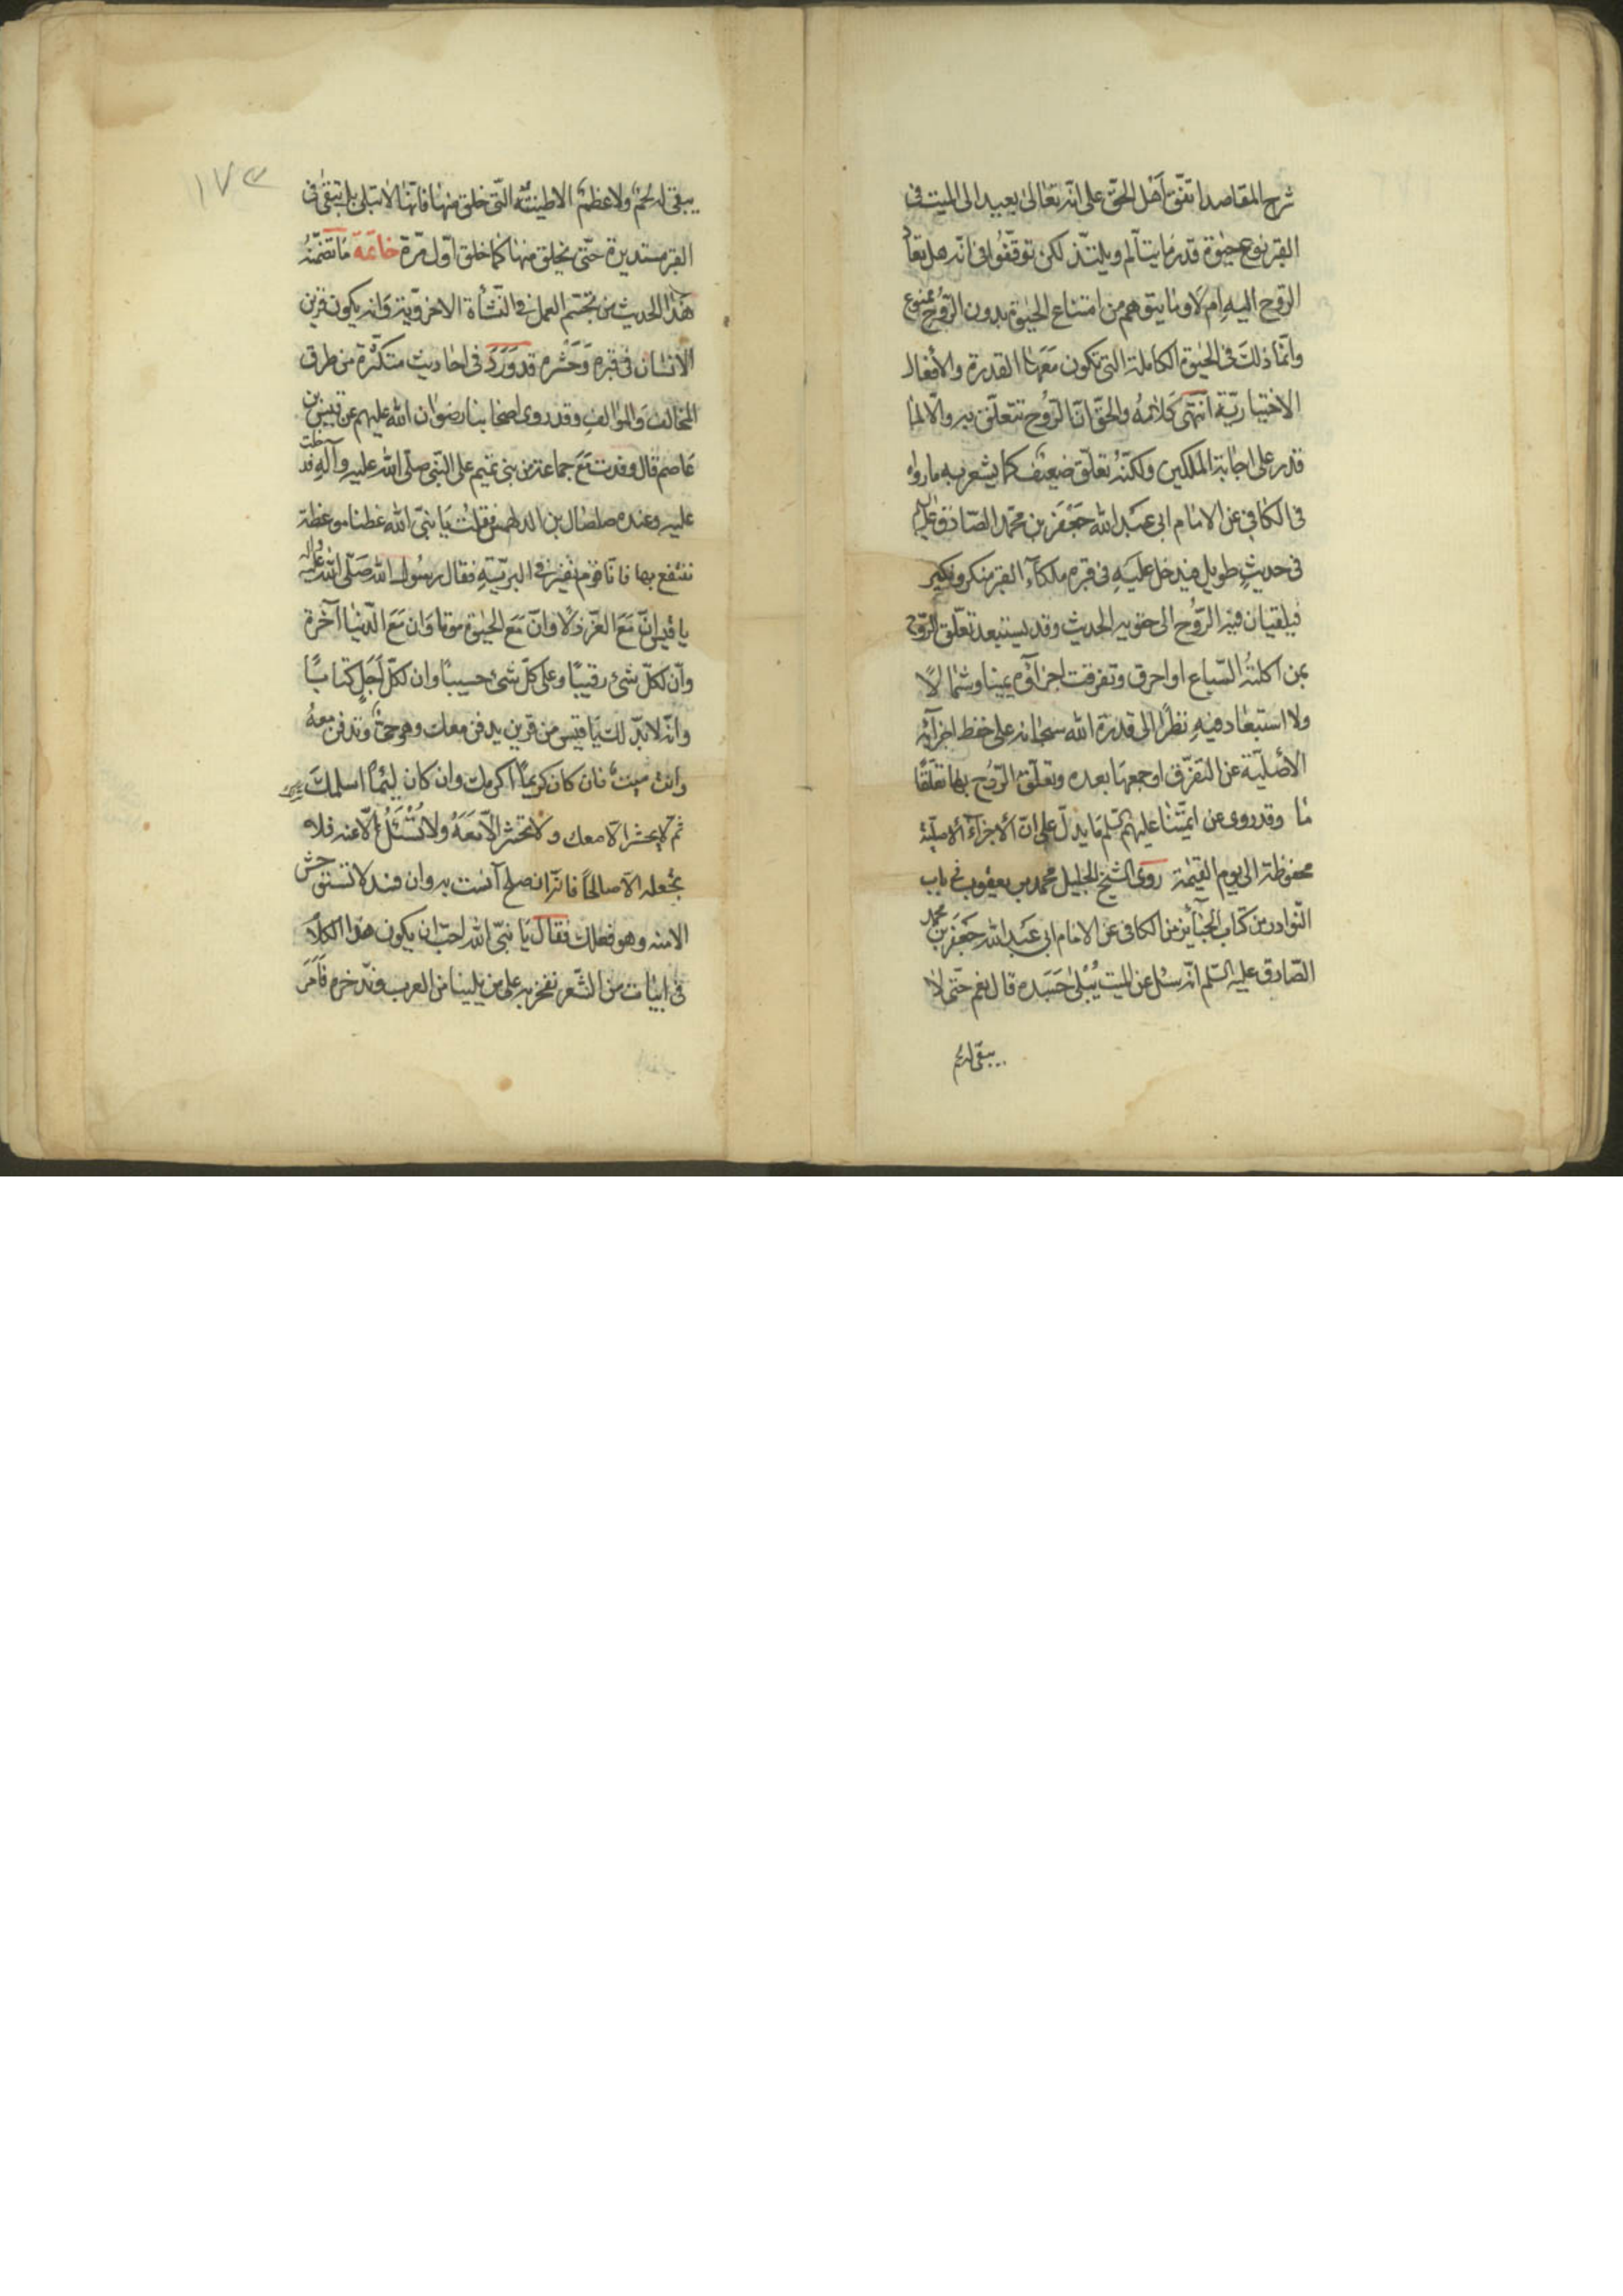 شرح المقاصد اتفق اهل الحق على انه تعالى يعيد الى الميت فى
القبر نوع حيوة قدر ما يتألم ويلتذ لكن توقفوا فى انه هل تعاد
الروح اليه ام لا وما يتوهم من امتناع الحيوة بدون الروح ممنوع
وانما ذلك فى الحيوة الكاملة التى تكون معها القدرة والأفعال
الاختيارية انتهى كلامه والحق ان الروح تتعلق به والا لما
قدر على اجابة الملكين ولكنه تعلق ضعيف كما يشعر به ما رواه
فى الكافى عن الامام ابى عبد الله جعفر بن محمد الصادق
فى حديث طويل فيدخل عليه فى قبره ملكا القبر منكر ونكير
فيلقيان فيه الروح الى حقويه الحديث وقد يستبعد تعلق الروح
بمن اكلته السباع او احرق وتفرقت اجزاؤه يمينا وشمالا
ولا استبعاد فيه نظرا الى قدرة الله سبحانه على حفظ اجزآئه
الأصلية عن التفرق او جمعها بعده وتعلق الروح بها تعلقا
ما وقد روى عن ائمتنا عليهم السلم ما يدل على ان الاجزآء الاصلية
محفوظة الى يوم القيمة روى الشيخ الجليل محمد بن يعقوب فى باب
النوادر من كتاب الجنآئز من الكافى عن الامام ابى عبد الله جعفر بن محمد
الصادق عليه السلم انه سئل عن الميت يبلى جسده قال نعم حتى لا
يبقى لحم
١٧٣
يبقى له لحم ولا عظم الا طينته التى خلق منها فانها لا تبلى بل تبقى فى
القبر مستديرة حتى يخلق منها كما خلق اول مرة خاتمة ما تضمنه
هذا الحديث من تجسم العمل فى النشأة الاخروية وانه يكون قرين
الانسان فى قبره وحشره قد ورد فى احاديث متكثرة من طرق
المخالف والموالف وقد روى اصحابنا رضوان الله عليهم عن قيس بن
عاصم قال وفدت مع جماعة من بنى تميم على النبى صلى الله عليه وآله فدخلت
عليه وعنده صلصال بن الدلهمس فقلت يا نبى الله عظنا موعظة
ننتفع بها فانا قوم نعبر فى البرية فقال رسول الله صلى الله عليه واله
يا قيس ان مع العز ذلا وان مع الحيوة موتا وان مع الدنيا آخرة
وان لكل شىء رقيبا وعلى كل شىء حسيبا وان لكل اجل كتابا
وانه لا بد لك يا قيس من قرين يدفن معك وهو حى وتدفن معه
وانت ميت فان كان كريما اكرمك وان كان لئيما اسلمك
ثم لا يحشر الا معك ولا تحشر الا معه ولا تسئل الا عنه فلا
تجعله الا صالحا فانه ان صلح آنست به وان فسد لا تستوحش
الا منه وهو فعلك فقال يا نبى الله احب ان يكون هذا الكلام
فى ابيات من الشعر نفخر به على من يلينا من العرب وندخره فأمر